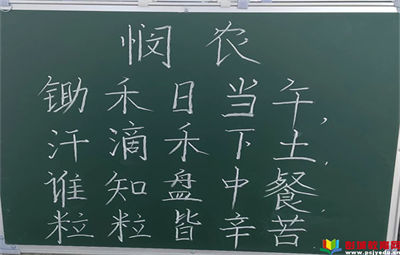 悯农
锄禾日当午，
汗滴禾下土，
谁知盘中餐，
粒粒皆辛苦